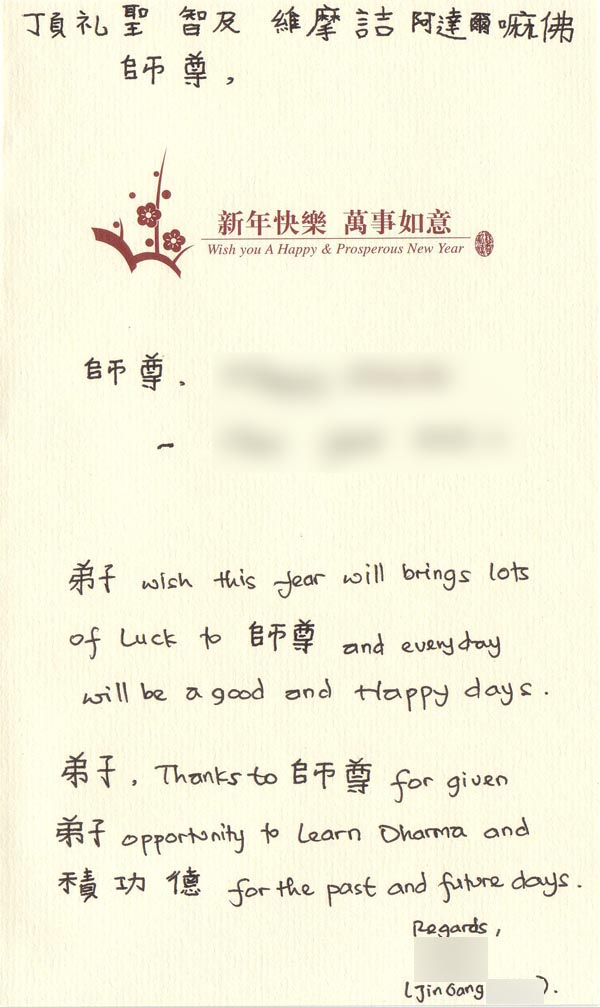 頂礼聖 智及 維摩詰 阿達爾嘛佛
師尊,
新年快樂 萬事如意
Wish you A Happy & Prosperous New Year
師尊,
弟子 wish this year will brings lots
of Luck to 師尊 and everyday
will be a good and Happy days.
弟子, Thanks to 師尊 for given
弟子 opportunity to Learn Dharma and
積功德 for the past and future days.
Regards,
(Jin Gang ).